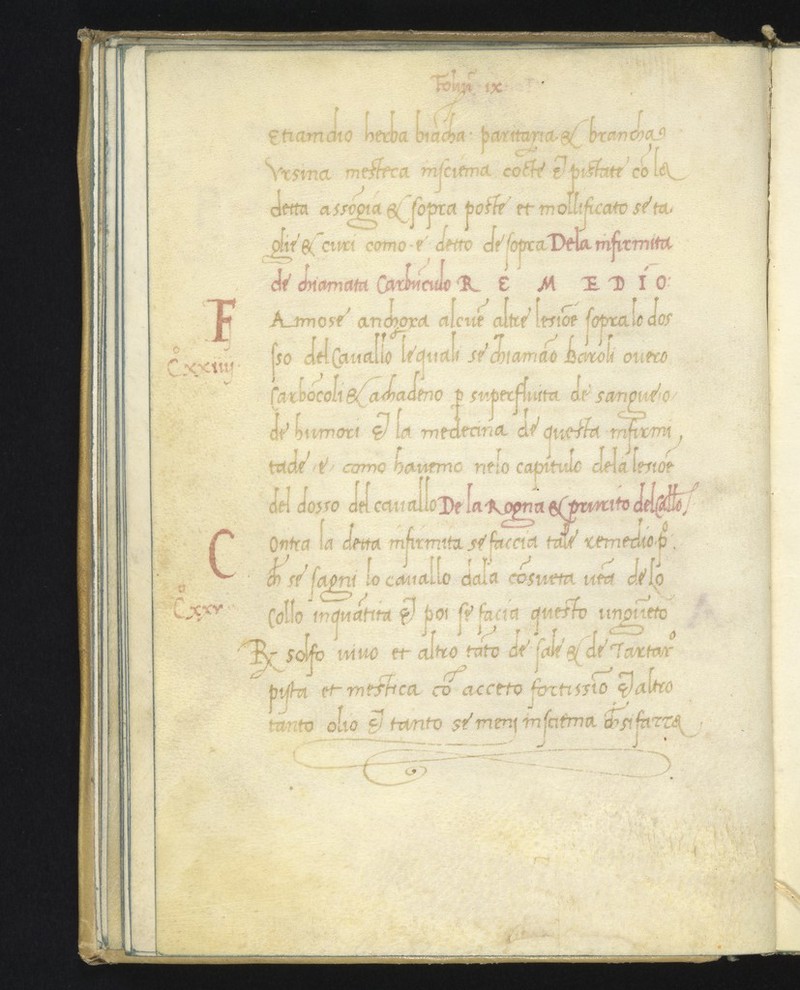 Foliū ix
Etiamdio herba biācha: paritaria & brancha
Vrsina mesteca insciema cocte & pistate cō la
detta assōgia & sopra poste et mollificato se ta
glie & curi como e detto de sopra Dela infirmita
de chiamata Carbūculo R E M E DIO:
F Annose anchora alcūe altre lesiōe sopra lo dos
Cͦxxiiij
sso del Cauallo le quali se chiamāo Baroli ouero
Carbōcoli & achadeno p superfluita de sangue o
de humori & la medecina de questa infirmi
tade e como hauemo nelo capitulo dela lesiōe
del dosso del cauallo De la Rogna & prurito del Callo
C Ontra la detta infirmita se faccia tale remedio pͦ.
ch se sagni lo cauallo dala cōsueta uēa de lo
Cͦxxv
Collo inquātita & poi se facia questo unguēto
R solfo uiuo et altro tāto de sale & de Tartarͦ
pista et mestica cō acceto fortissiō & altro
tanto olio & tanto se meni insciema ch si farra